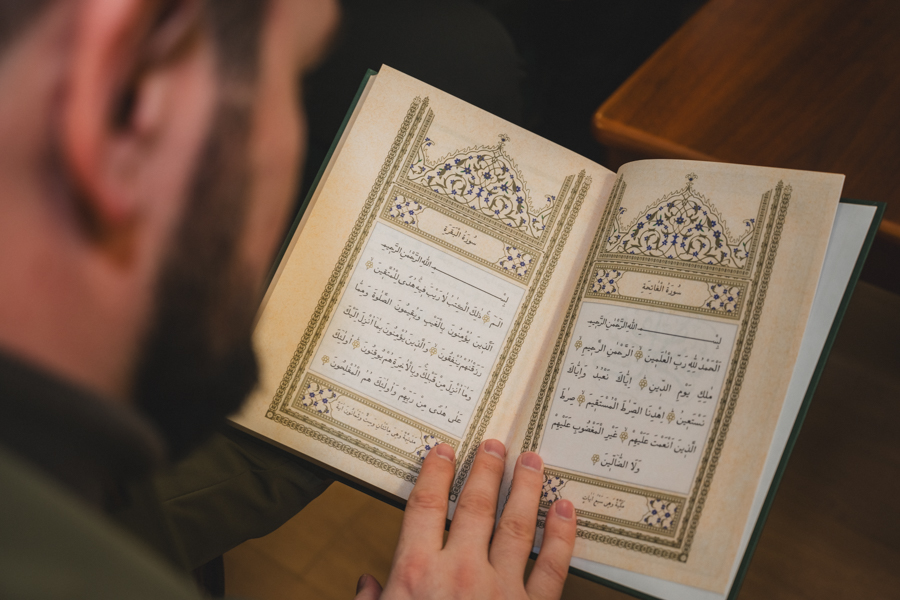 سُورَةُ الْفَاتِحَةِ
بِسْمِ اللهِ الرَّحْمٰنِ الرَّحِيمِ
الْحَمْدُ لِلّٰهِ رَبِّ الْعٰلَمِينَ الرَّحْمٰنِ الرَّحِيمِ
مٰلِكِ يَوْمِ الدِّينِ إِيَّاكَ نَعْبُدُ وَإِيَّاكَ
نَسْتَعِينُ اِهْدِنَا الصِّرٰطَ الْمُسْتَقِيمَ صِرٰطَ
الَّذِينَ أَنْعَمْتَ عَلَيْهِمْ غَيْرِ الْمَغْضُوبِ عَلَيْهِمْ
وَلَا الضَّالِّينَ
مكيّة وهي سبع آيات
سُورَةُ الْبَقَرَةِ
بِسْمِ اللهِ الرَّحْمٰنِ الرَّحِيمِ
الٓمٓ ذٰلِكَ الْكِتٰبُ لَا رَيْبَ فِيهِ هُدًى لِلْمُتَّقِينَ
الَّذِينَ يُؤْمِنُونَ بِالْغَيْبِ وَيُقِيمُونَ الصَّلٰوةَ وَمِمَّا
رَزَقْنٰهُمْ يُنْفِقُونَ وَالَّذِينَ يُؤْمِنُونَ بِمَا أُنْزِلَ إِلَيْكَ
وَمَا أُنْزِلَ مِنْ قَبْلِكَ وَبِالْآخِرَةِ هُمْ يُوقِنُونَ أُولٰئِكَ
عَلَى هُدًى مِنْ رَبِّهِمْ وَأُولٰئِكَ هُمُ الْمُفْلِحُونَ
مدنيّة وهي مائتان وستّ وثمانون آية